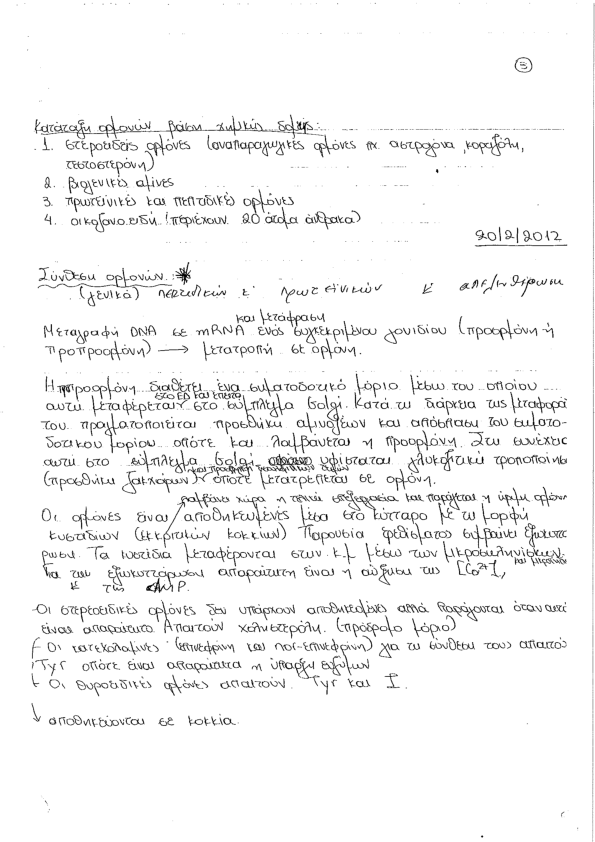 5
Κατάταξη ορμονών βάση χημικής δομής:
1. στεροειδείς ορμόνες (αναπαραγωγικές ορμόνες πχ οιστρογόνα, κορτιζόλη,
τεστοστερόνη)
2. βιογενικές αμίνες
3. πρωτεϊνικές και πεπτιδικές ορμόνες
4. οικοζανοειδή (περιέχουν 20 άτομα άνθρακα)
20/2/2012
Σύνθεση ορμονών:
(γενικά) πεπτιδικών κ πρωτεϊνικών κ απελευθέρωση
και μετάφραση
Μεταγραφή DNA σε mRNA ενός συγκεκριμένου γονιδίου (προορμόνη ή
προπροορμόνη) → μετατροπή σε ορμόνη.
Η προορμόνη διαθέτει ένα σηματοδοτικό μόριο μέσω του οποίου
στο ΕΔ και έπειτα
αυτή μεταφέρεται στο σύμπλεγμα Golgi. Κατά τη διάρκεια της μεταφορά
του πραγματοποιείται προσθήκη αμινοξέων και απόσπαση του σηματο-
δοτικού μορίου οπότε και λαμβάνεται η προορμόνη. Στη συνέχεια
αυτή στο σύμπλεγμα Golgi υφίσταται γλυκολιτική τροποποίηση
και προσθήκη
(προσθήκη ζακχάρων) οπότε μετατρέπεται σε ορμόνη.
λαμβάνει χώρα η τελική επεξεργασία και παράγεται η ώριμη ορμόνη
Οι ορμόνες είναι αποθηκευμένες μέσα στο κύτταρο με τη μορφή
κυστιδίων (εκκριτικών κοκκίων) Παρουσία ερεθίσματος συμβαίνει εξωκυττ
άρωση. Τα κυστίδια μεταφέρονται στην κ.μ μέσω των μικροσωληνίσκων
Για την εξωκυττάρωση απαραίτητη είναι η αύξηση της [Ca2+],
κ της cAMP.
-Οι στεροειδικές ορμόνες δεν υπάρχουν αποθηκευμένες αλλά παράγονται όταν αυτέ
είναι απαραίτητο. Απαιτούν χοληστερόλη. (πρόδρομο μόριο)
- Οι κατεχολαμίνες (επινεφρίνη και νορ-επινεφρίνη) για τη σύνθεση τους απαιτού
Tyr οπότε είναι απαραίτητα η ύπαρξη ενζύμων
- Οι θυροειδικές ορμόνες απαιτούν Tyr και I.
↓ αποθηκεύονται σε κοκκία.